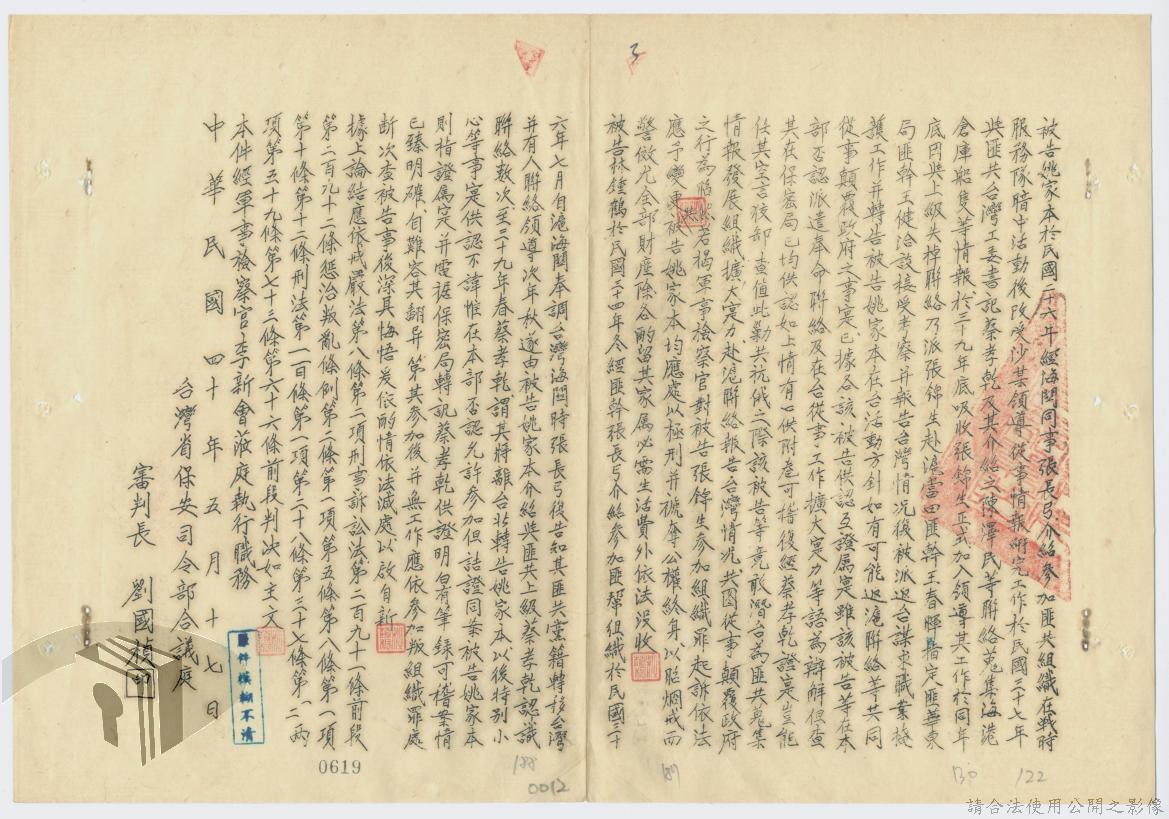 3
被告姚家本於民國二十六年經海關同事張長弓介紹參加匪共組織在戰時
服務隊暗中活動後改受沙其領導從事情報研究工作於民國三十七年
與匪共台灣工委書記蔡孝乾及其介紹之陳澤民等聯絡蒐集海港
倉庫船隻等情報於三十九年底吸收張錦生正式加入領導其工作於同年
底因與上級失掉聯絡乃派張錦生赴滬當四匪幹王春暉
局匪幹王健洽談接受考察并報告台灣情況後被派返台謀求職業掩
護工作并轉告被告姚家本在台活動方針如有可能返滬聯絡等共同
從事顛覆政府之事實已據各該被告供認互證屬實雖該被告等在本
部否認派遣奉命聯絡及在台從事工作擴大實力等語為辯解但查
其在保密局已均供認如上情有口供附卷可稽復經蔡孝乾證實豈能
任其空言狡卸查值此勦共抗俄之際該被告等竟敢潛台為匪共蒐集
情報發展組織擴大實力赴滬聯絡報告台灣情況共圖從事顛覆政府
之行為昭然若揭軍事檢察官對被告張錦生參加組織罪起訴依法
應予變更被告姚家本均應處以極刑并褫奪公權終身以昭炯戒而
警傚尤全部財產除各酌留其家屬必需生活費外依法沒收
被告林鍾鶴於民國二十四年冬經匪幹張長弓介紹參加匪幫組織於民國三十
六年七月自滬海關奉調台灣海關時張長弓復告知其匪共黨籍轉移台灣
并有人聯絡領導次年秋遂由被告姚家本介紹與匪共上級蔡孝乾認識
聯絡數次至三十九年春蔡孝乾謂其將離台北轉告姚家本以後特別小
心等事實供認不諱惟在本部否認允許參加但詰證同案被告姚家本
則指證屬實并電據保密局轉訊蔡孝乾供證明白有筆錄可稽案情
已臻明確自難容其翻異第其參加後并無工作應依參加叛組織罪處
斷次查被告事後深具悔悟爰依酌情依法減處以啟自新
據上論結應依戒嚴法第八條第二項刑事訴訟法第二百九十一條前段
第二百九十二條懲治叛亂條例第二條第一項第五條第八條第一項
第十條第十二條刑法第一百條第一項第二十八條第三十七條第一二兩
項第五十九條第七十三條第六十六條前段判決如主文
本件經軍事檢察官李新會蒞庭執行職務
中華民國四十年五月十七日
台灣省保安司令部合議庭
審判長 劉國楨 印
原件模糊不清
0619
188
0012
187
130
122
請合法使用公開之影像